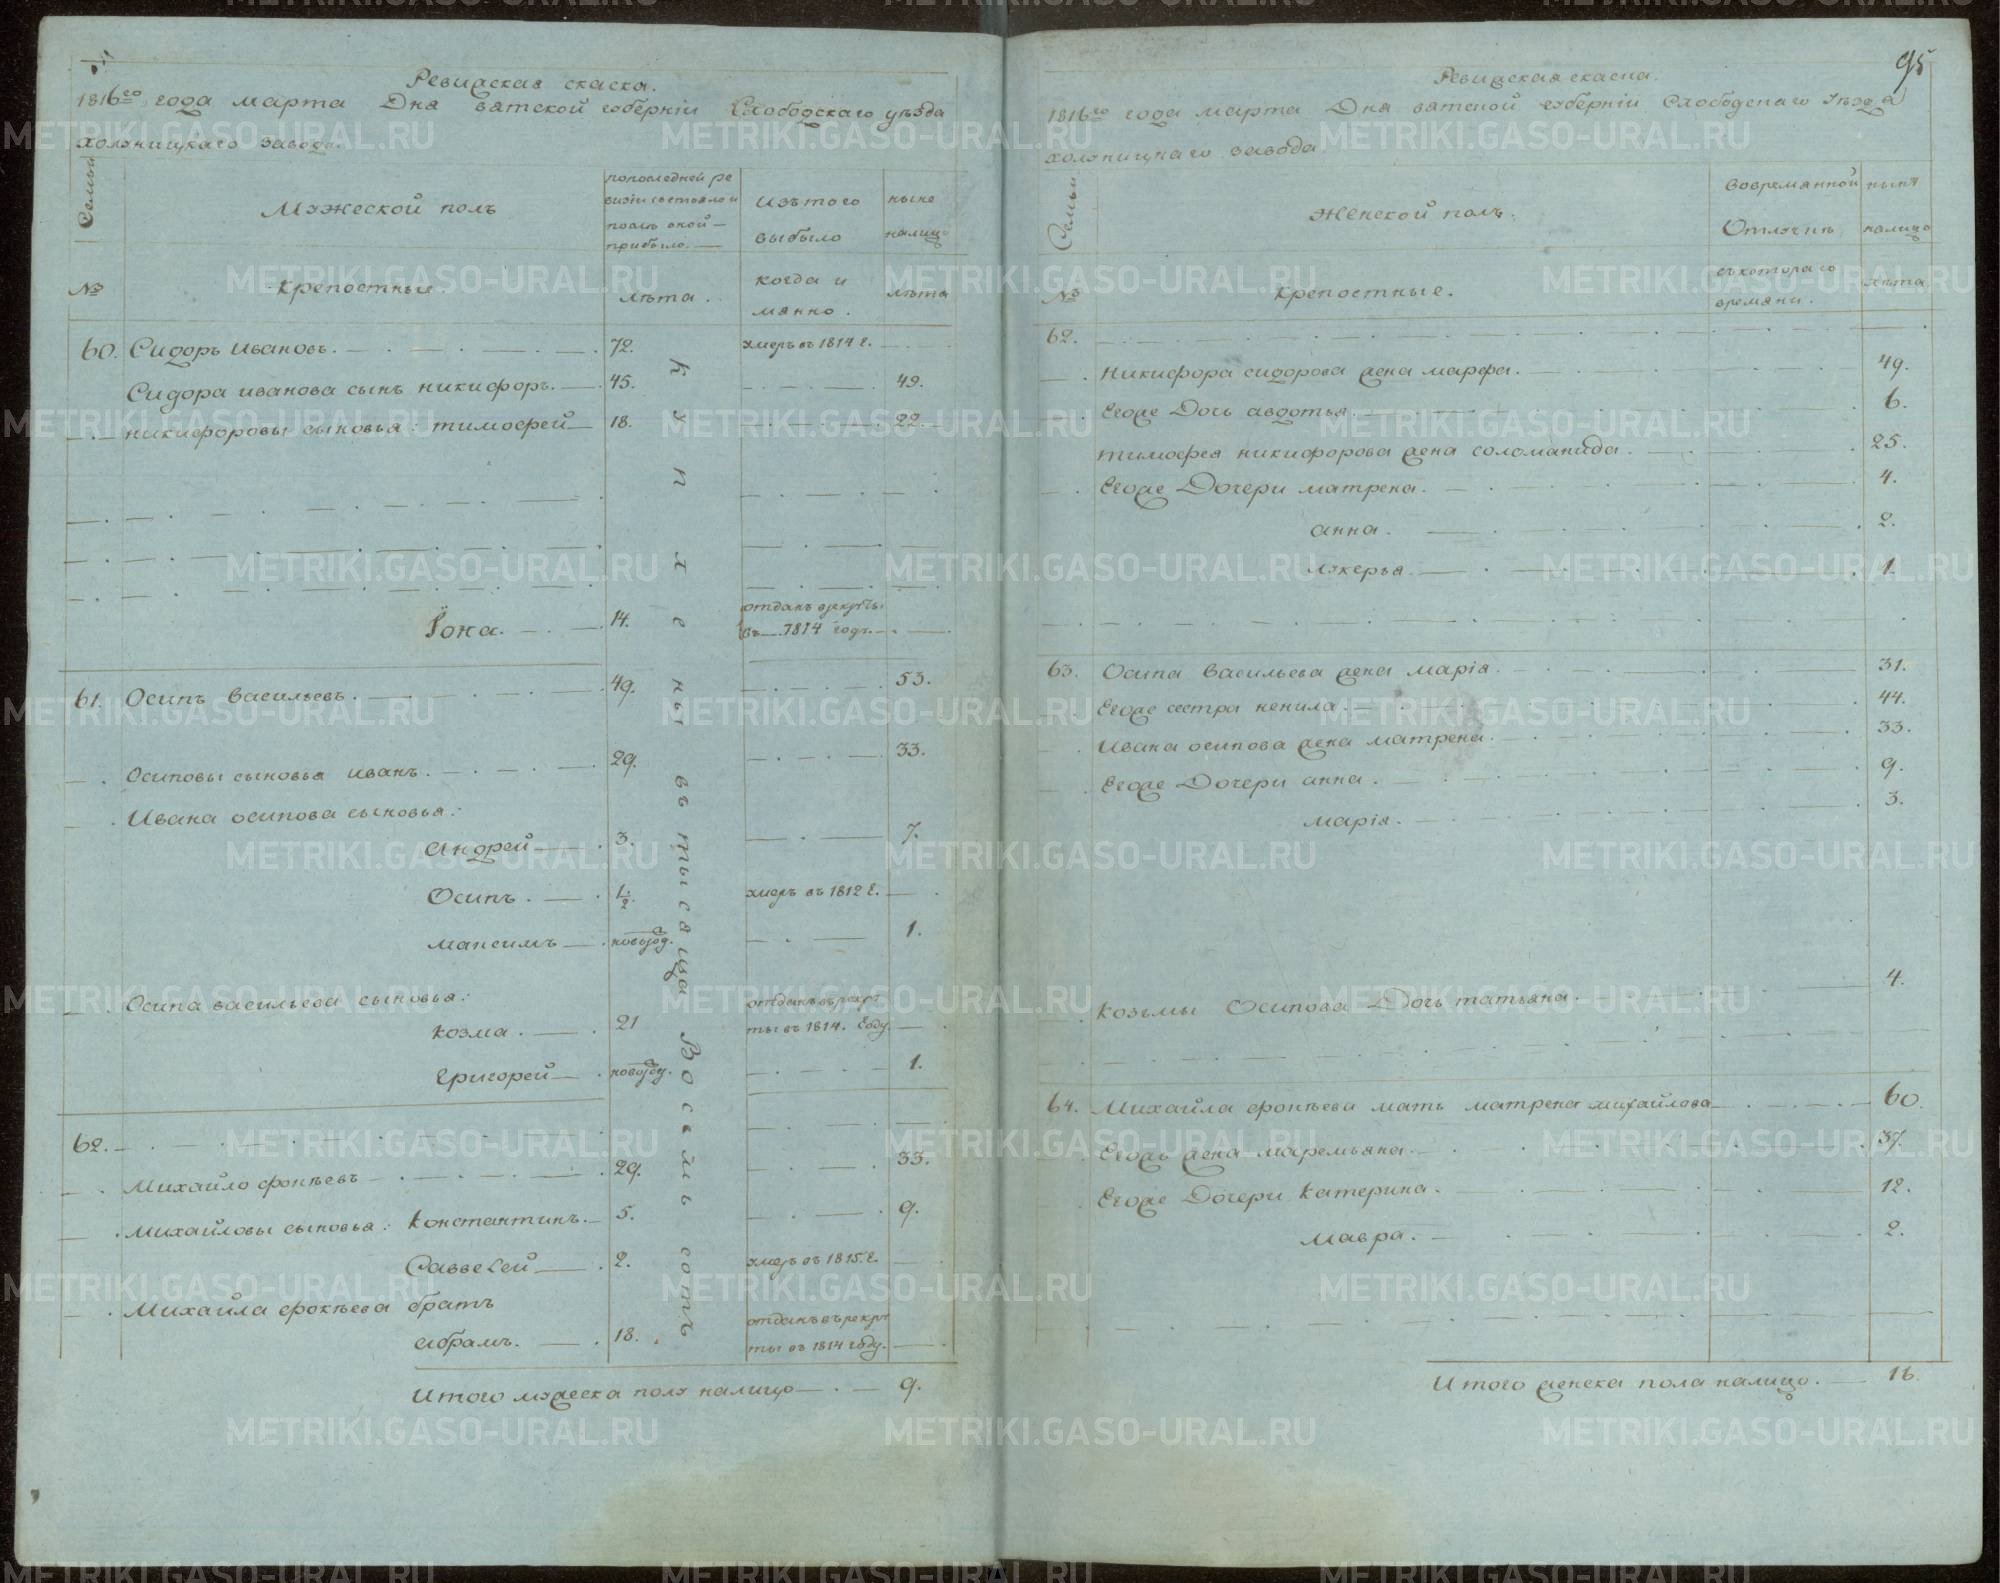 95
Ревизская скаска.
1816го года марта Дня вятской губерніи Слободскаго уѣзда
холуницкаго завода.
Семьи
Мужеской полъ
попоследней ре
визіи состояло и
послѣ оной
прибыло.
Изътого
выбыло
ныне
налицо
№
крепостные.
лѣта.
когда и
манно.
лѣта
60. Сидоръ Ивановъ. 72. умеръ въ 1814 г.
Сидора иванова сынъ никифоръ. 45. 49.
никифоровы сыновья: тимофей 18. 22.
Іона. 14. отданъ врекруты
въ 1814 годъ.
61. Осипъ Васильевъ. 49. 53.
Осиповы сыновья иванъ. 29. 33.
Ивана осипова сыновья:
Андрей 3. 7.
Осипъ. 1/2. умеръ въ 1812 г.
максимъ новород. 1.
Осипа васильева сыновья:
козма. 21 отданъ въ рекру
ты въ 1814. Году.
Григорей новород. 1.
62.
Михайло фокѣевъ 29. 33.
Михайловы сыновья: Константинъ. 5. 9.
Саввелей 2. умеръ въ 1815 г.
Михайла фокѣева братъ
абрамъ. 18. отданъ въ рекру
ты въ 1814 году.
Купленные въ тысяща Восемь сотъ
Итого мужеска полу налицо 9.
Ревизская скаска.
1816го года марта Дня вятской губерніи Слободскаго Уѣзда
холуницкаго завода.
Семьи
Женской полъ.
Вовременной
Отлучкѣ
нынѣ
налицо
№
крепостные.
съкотораго
времяни.
лѣта
62.
Никифора сидорова жена марфа. 49.
Егоже Дочь авдотья. 6.
тимофея никифорова жена соломанида. 25.
Егоже Дочери матрена. 4.
анна. 2.
лукерья. 1.
63. Осипа Васильева жена марія. 31.
Егоже сестра ненила. 44.
Ивана осипова жена матрена. 33.
Егоже Дочери анна. 9.
марія. 3.
козьмы Осипова Дочь татьяна. 4.
64. Михайла фокѣева мать матрена михайлова 60.
Егожъ жена маремьяна. 37.
Егоже Дочери Катерина. 12.
мавра. 2.
Итого женска пола налицо. 16.
METRIKI.GASO-URAL.RU